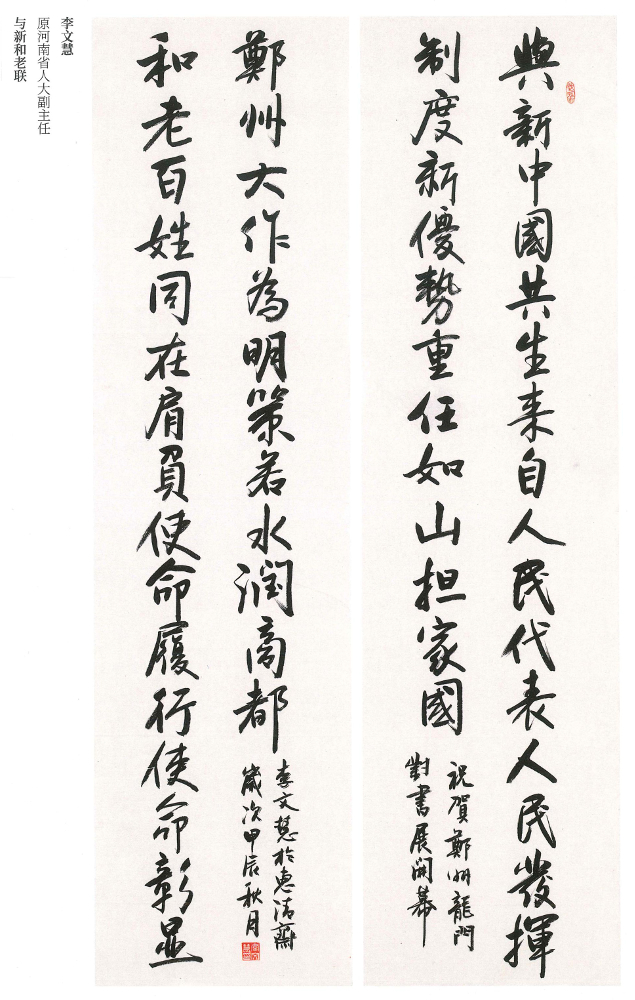 李文慧
原河南省人大副主任
与新和老联
與新中國共生来自人民代表人民發揮
制度新優勢重任如山担家國
祝賀鄭州龍門
對書展開幕
和老百姓同在肩負使命履行使命彰显
鄭州大作為明策若水潤商都
李文慧於惠清齋
歲次甲辰秋月